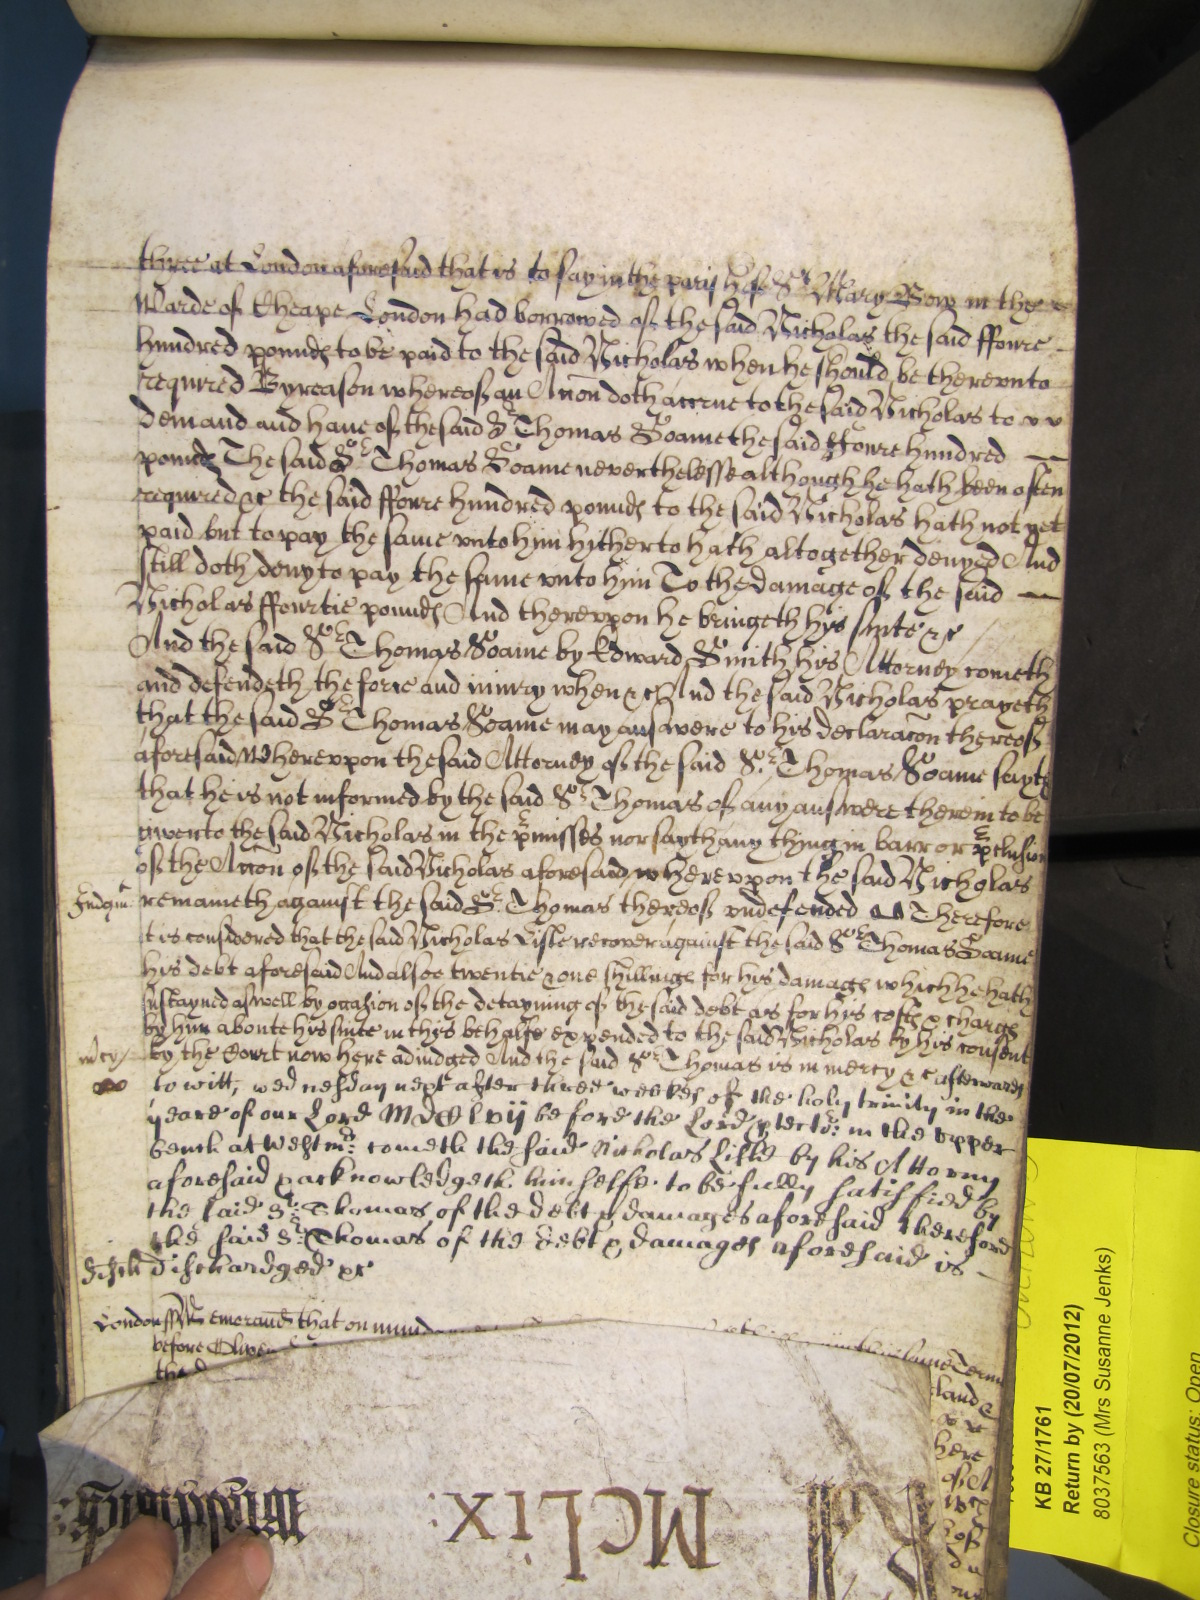 three at London aforesaid that is to say in the parish of St Mary Bow in the
Warde of Cheape London had borrowed of the said Nicholas the said ffowre
hundred pounds to be paid to the said Nicholas when he should be therevnto
required By reason whereof an Accon doth accrue to the said Nicholas to
demand and haue of the said Sr Thomas Soame the said ffowre hundred
pounds The said Sr Thomas Soame neverthelesse although he hath been often
required &c the said ffowre hundred pounds to the said Nicholas hath not yet
paid but to pay the same vnto him hitherto hath altogether denyed And
still doth deny to pay the same vnto him To the damage of the said
Nicholas ffourtie pounds And therevpon he bringeth his suite &c
And the said Sr Thomas Soame by Edward Smith his Attorney cometh
and defendeth the force and iniury when &c And the said Nicholas prayeth
that the said Sr Thomas Soame may answere to his declaracon thereof
aforesaid Wherevpon the said Attorney of the said Sr Thomas Soame sayth
that he is not informed by the said Sr Thomas of any answere therein to be
given to the said Nicholas in the pmisses nor sayth any thing in barr or pclusion
of the Accon of the said Nicholas aforesaid wherevpon the said Nicholas
Iudgmt remaineth against the said Sr Thomas thereof vndefended Therefore
it is considered that the said Nicholas Lisle recover against the said Sr Thomas Soame
his debt aforesaid And alsoe twentie & one shillings for his damage which he hath
sustayned aswell by occasion of the detayning of the said debt as for his costs & charges
by him aboute his suite in this behalfe expended to the said Nicholas by his consent
mcy by the Court now here adiudged And the said Sr Thomas is in mercy &c afterwards
to witt, wednesday next after three weekes of the holy trinity in the
yeare of our Lord MDClvij before the Lord ptector in the vpper
bench at Westmr cometh the said Nicholas Lisle by his Attorny
aforesaid & acknowledgeth himselfe to be fully satisfied by
the said Sr Thomas of the debt & damages aforesaid therefore
the said Sr Thomas of the debt & damages aforesaid is
disch dischardged &c
London ss Memorand that on
before Oliver
the
Roll
MCLIX:
KB 27/1761
Return by (20/07/2012)
8037563 (Mrs Susanne Jenks)
Closure status: Open